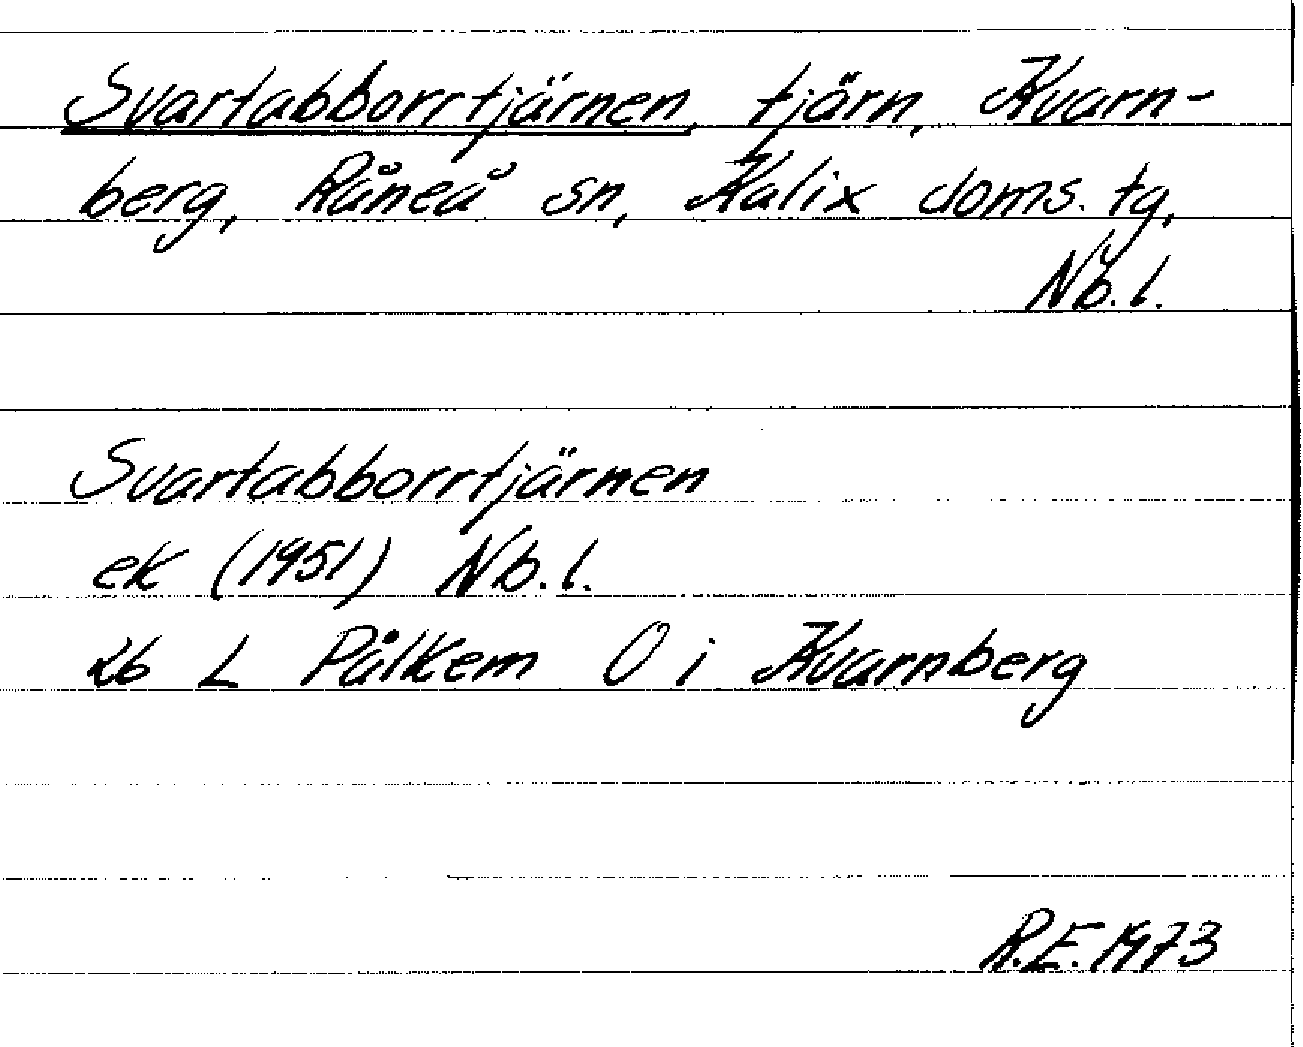 Svartabborrtjärnen, tjärn, Kvarn-
berg, Råneå sn, Kalix doms. tg,
Nb. l.
Svartabborrtjärnen
ek (1951) Nb. l.
26 L Pålkem O i Kvarnberg
R.E. 1973